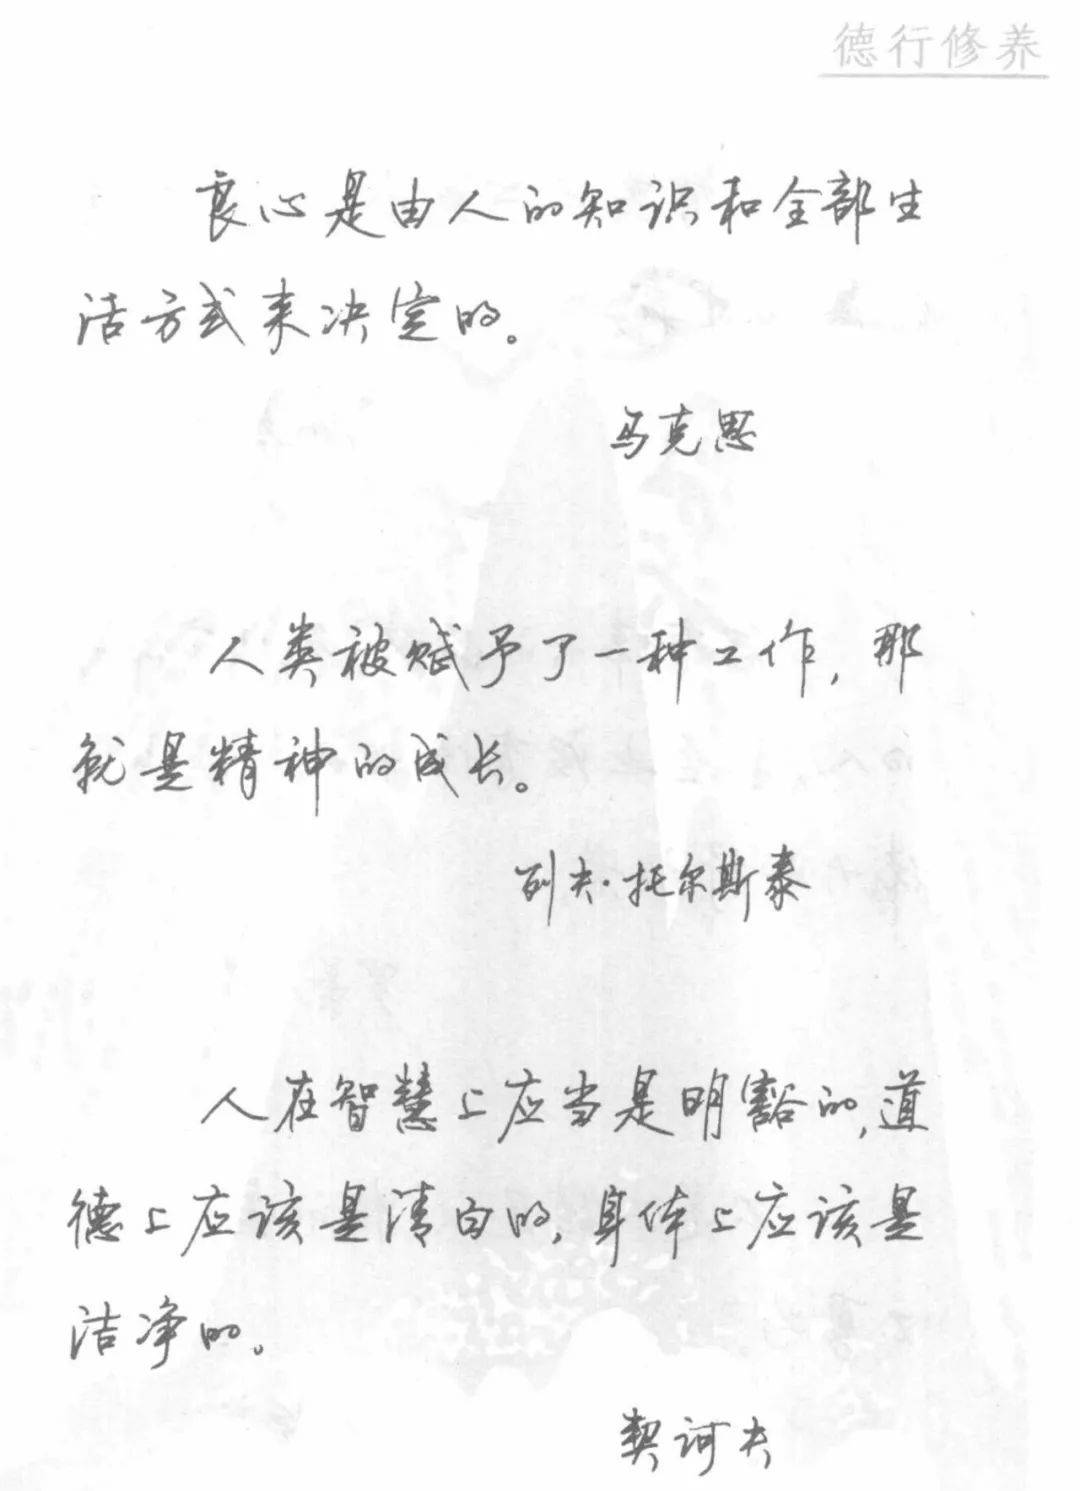 德行修养
良心是由人的知识和全部生
活方式来决定的。
马克思
人类被赋予了一种工作，那
就是精神的成长。
列夫·托尔斯泰
人在智慧上应当是明豁的，道
德上应该是清白的，身体上应该是
洁净的。
契诃夫